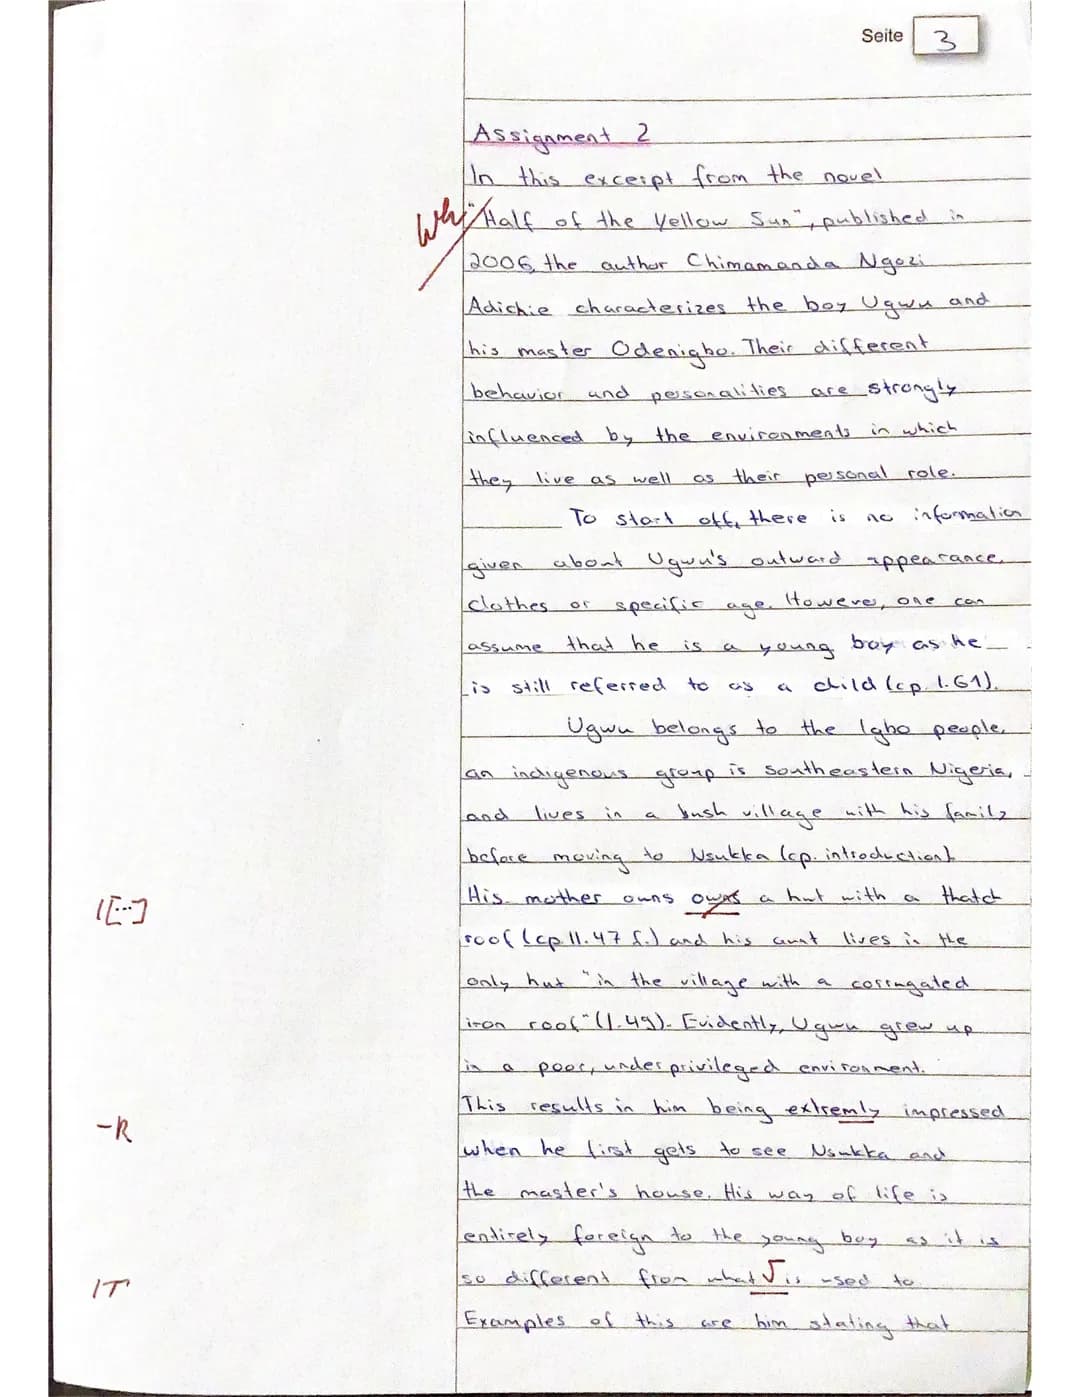 Seite 3
Assignment 2
In this excerpt from the novel
"Half of the Yellow Sun", published in
2006, the author Chimamanda Ngozi
Adichie characterizes the boy Ugwu and
his master Odenigbo. Their different
behavior and personalities are strongly
influenced by the environments in which
they live as well as their personal role.
To start off, there is no information
given about Ugwu's outward appearance,
clothes or specific age. However, one can
assume that he is a young boy as he
is still referred to as a child (cp. l.61).
Ugwu belongs to the Igbo people,
an indigenous group is southeastern Nigeria,
and lives in a bush village with his family
before moving to Nsukka (cp. introduction).
His mother owns owns a hut with a thatch
1[...]
roof (cp ll.47 f.) and his aunt lives in the
only hut "in the village with a corrugated
iron roof" (l.49). Evidently, Ugwu grew up
in a poor, underprivileged environment.
This results in him being extremly impressed
-R
when he first gets to see Nsukka and
the master's house. His way of life is
entirely foreign to the young boy as it is
so different from what √ is used to.
1T
Examples of this are him stating that